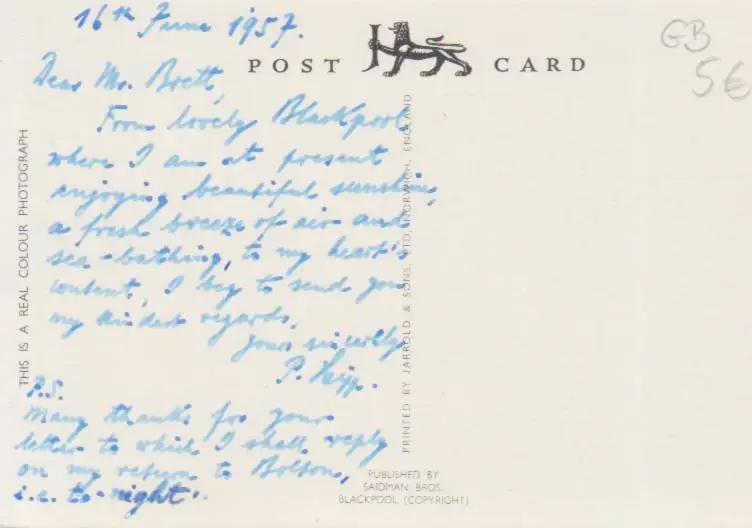 16th June 1957.
Dear Mr. Brett,
From lovely Blackpool,
where I am at present
enjoying beautiful sunshine,
a fresh breeze of air and
sea-bathing, to my heart's
content, I beg to send you
my kindest regards.
Yours sincerely
P.
P.S.
Many thanks for your
letter to which I shall reply
on my return to Bolton,
i.e. to-night.
POST CARD
GB
5€
THIS IS A REAL COLOUR PHOTOGRAPH
PRINTED BY JARROLD & SONS, LTD, NORWICH, ENGLAND
PUBLISHED BY
SAIDMAN BROS.
BLACKPOOL (COPYRIGHT)